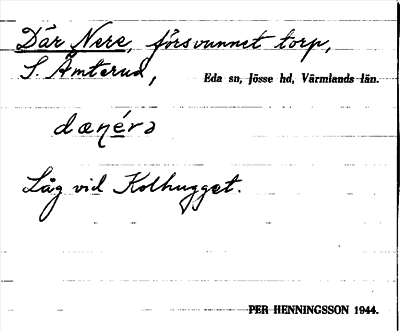 Där Nere, försvunnet torp,
S. Åmterud, Eda sn, Jösse hd, Värmlands län.
dæṇérə
Låg vid Kolhugget.
PER HENNINGSSON 1944.